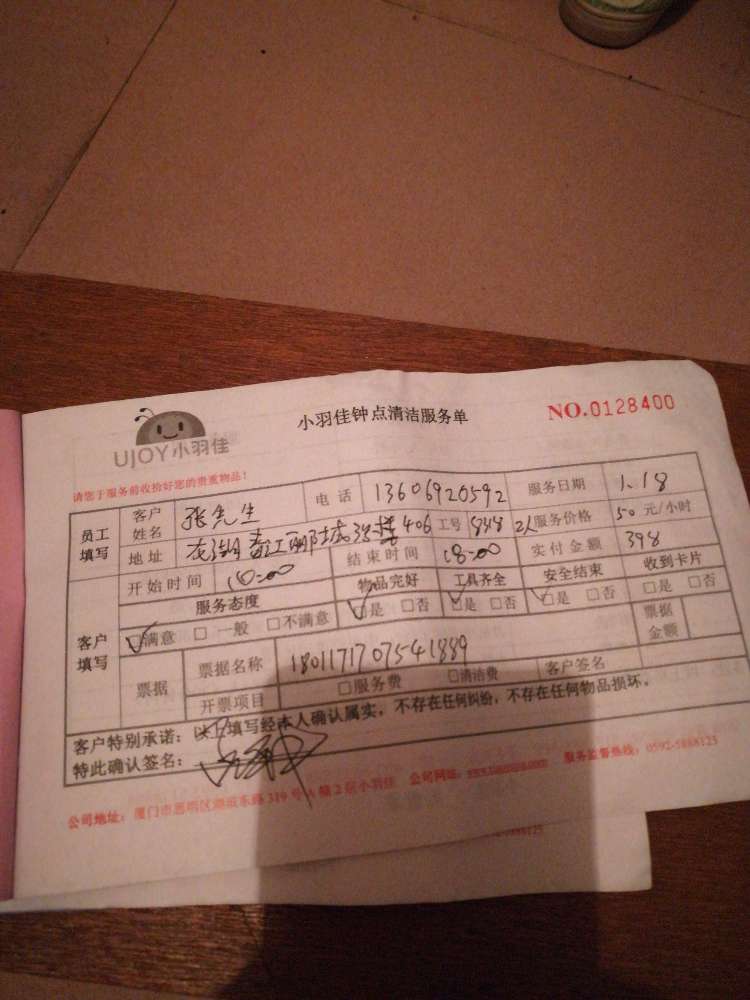 UJOY小羽佳
小羽佳钟点清洁服务单
NO.0128400
请您于服务前收拾好您的贵重物品!
员工填写 客户姓名 张先生 电话 13606920592 服务日期 1.18
地址 406 工号 848 2人 服务价格 50 元/小时
开始时间 10-00 结束时间 18-00 实付金额 398
客户填写 服务态度 物品完好 工具齐全 安全结束 收到卡片
☑满意 □一般 □不满意 ☑是 □否 ☑是 □否 ☑是 □否 □是 □否
票据 票据名称 1801171707541889 票据金额
开票项目 □服务费 □清洁费 客户签名
客户特别承诺:以上填写经本人确认属实,不存在任何纠纷,不存在任何物品损坏。
特此确认签名:
公司地址:厦门市思明区湖滨东路319号A幢2层小羽佳 公司网址: 服务监督热线:0592-5888125